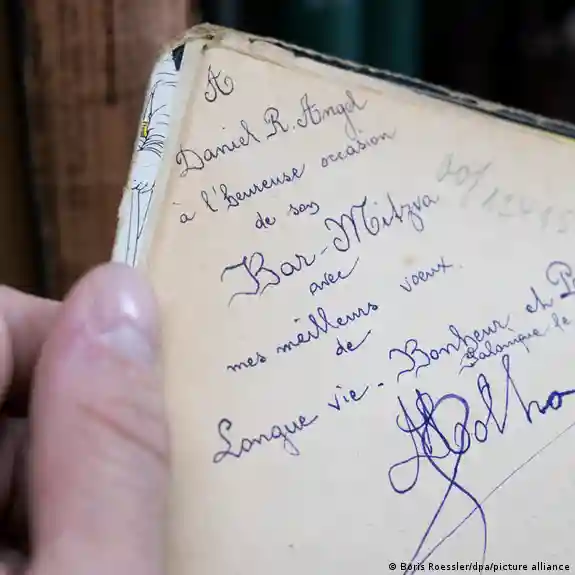 A
Daniel R. Angel
à l'heureuse occasion
de son
Bar-Mitzva
avec
mes meilleurs voeux.
de
Longue vie - Bonheur et
Salonique le
Molho
© Boris Roessler/dpa/picture alliance